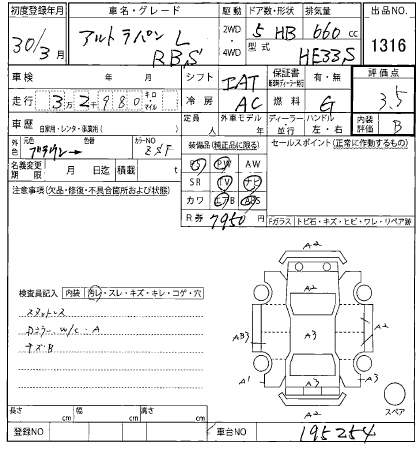 初度登録年月 車名・グレード 駆動 ドア数・形状 排気量 出品NO.
30/3月 アルトラパン L 2WD 5 HB 660cc 1316
RBS 4WD 型式 HE33S
車検 年 月 シフト IAT 保証書 有・無 評価点
走行 3万2千980 キロ・マイル 冷房 AC 燃料 G 3.5
車歴 自家用・レンタ・事業用( ) 定員 人 外車モデル 年 ディーラー・並行 ハンドル 左・右 内装評価 B
外色 元色 色番 カラーNO ZSF 装備品(純正品に限る) セールスポイント(正常に作動するもの)
名義変更期限 月 日迄 積載 t PS PW AW
注意事項(欠品・修復・不具合箇所および状態) SR TV ナビ
カワ エアB ABS
R券 7950円
Fガラス トビ石・キズ・ヒビ・ワレ・リペア跡
検査員記入 内装 汚レ・スレ・キズ・キレ・コゲ・穴
スタットレス
W/C:A
キズB
A2
A2
A2
AB3 A3 A2
A1 A3 A3
A2
スペア
長さ cm 幅 cm 高さ cm
登録NO 車台NO 195254